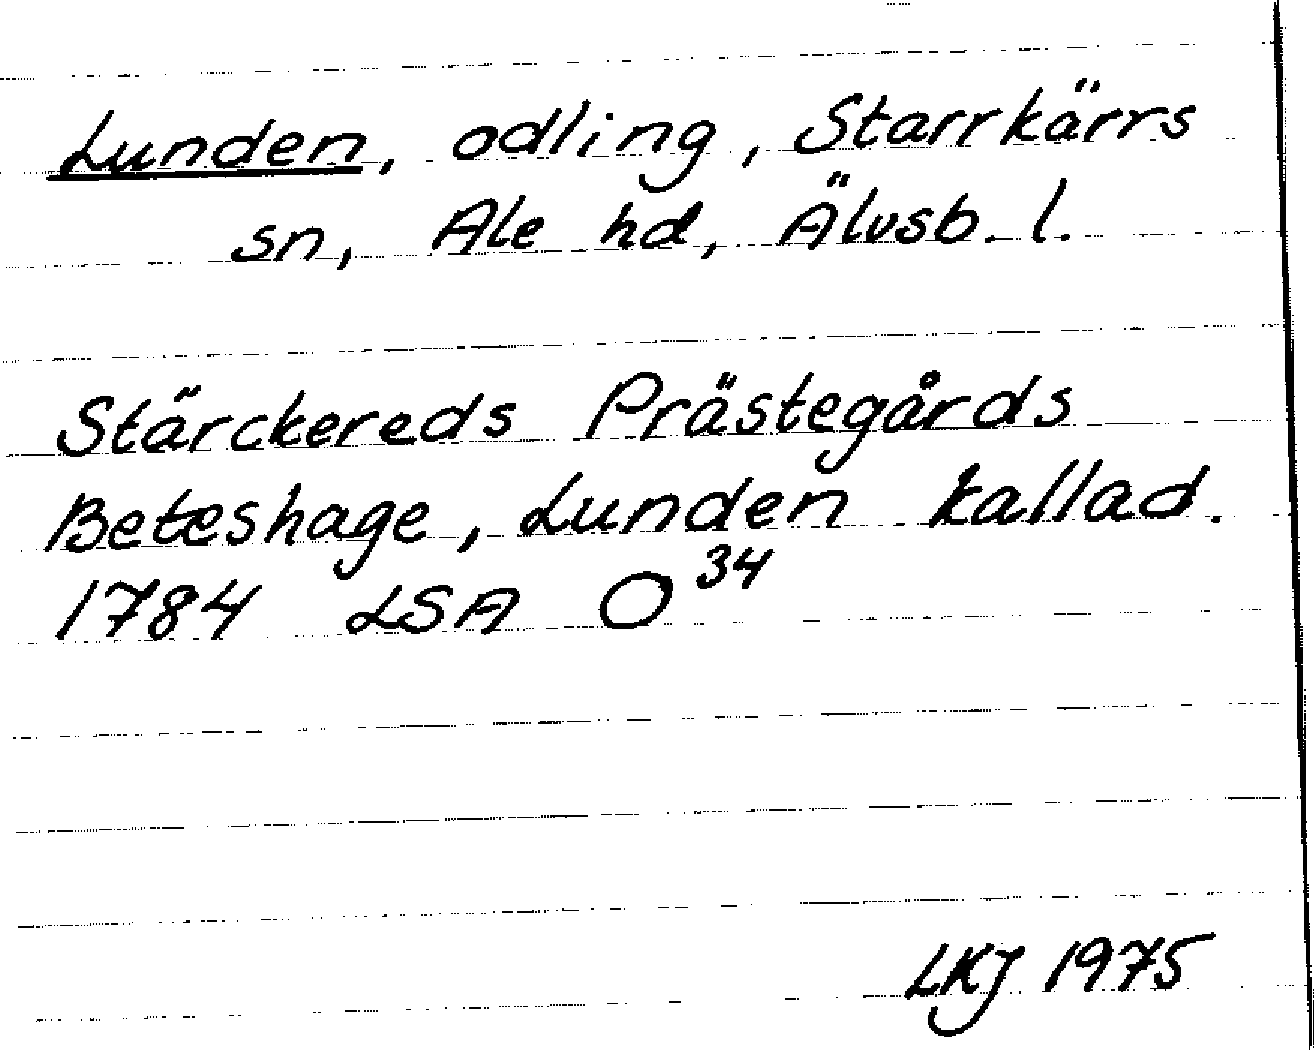 Lunden, odling, Starrkärrs
sn, Ale hd, Älvsb. l.
Stärckereds Prästegårds
Beteshage, Lunden kallad.
1784 LSA O 34
LKJ 1975